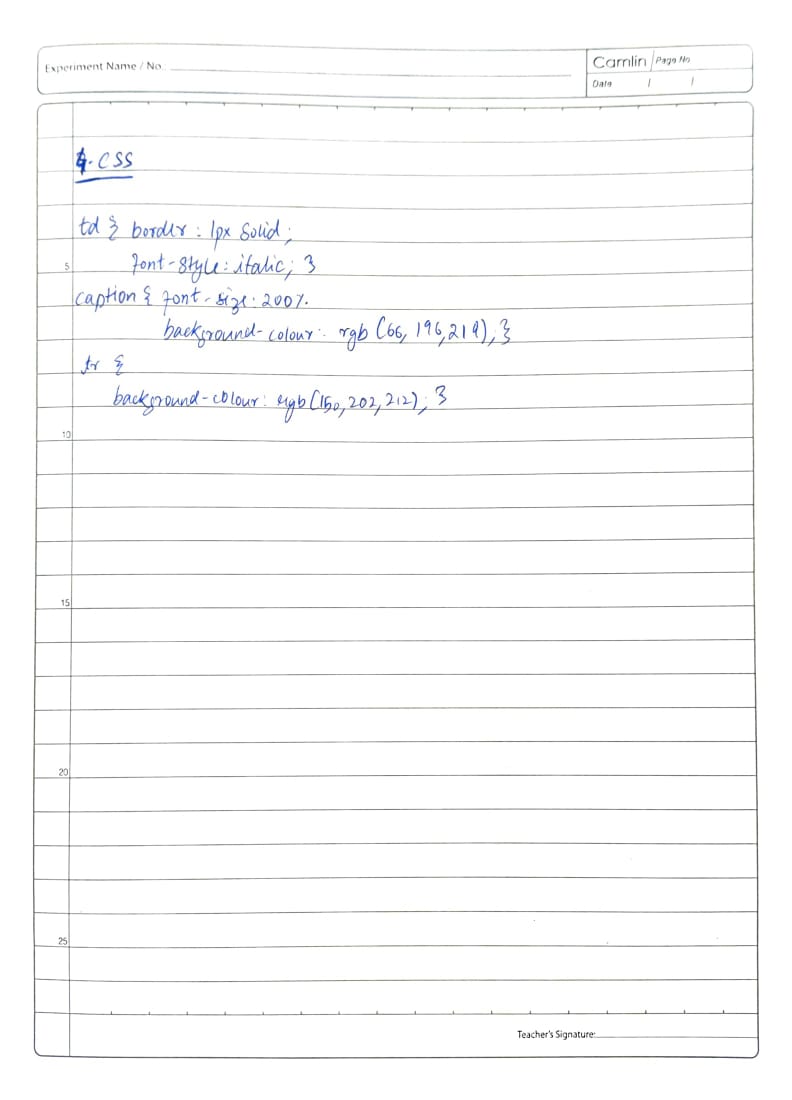 Experiment Name / No.:
Camlin Page No
Date / /
4.CSS
td { border : 1px Solid;
5
font-style: italic; }
caption { font-size: 200%.
background-colour: rgb (66, 196,219); }
tr {
background-colour: rgb(150, 202, 212); }
10
15
20
25
Teacher's Signature: